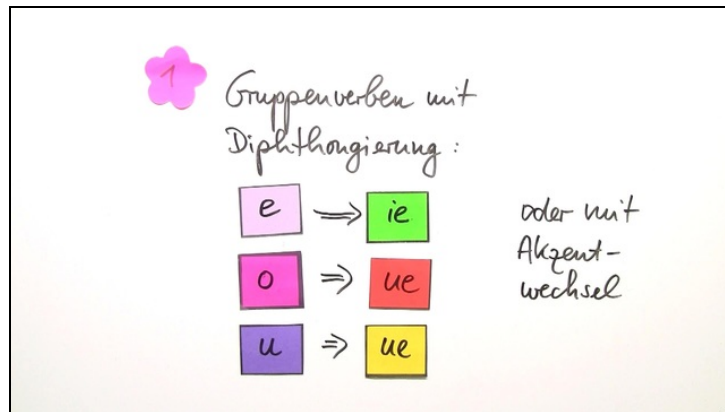 1
Gruppenverben mit
Diphthongierung:
e ⇒ ie
o ⇒ ue
u ⇒ ue
oder mit
Akzent-
wechsel